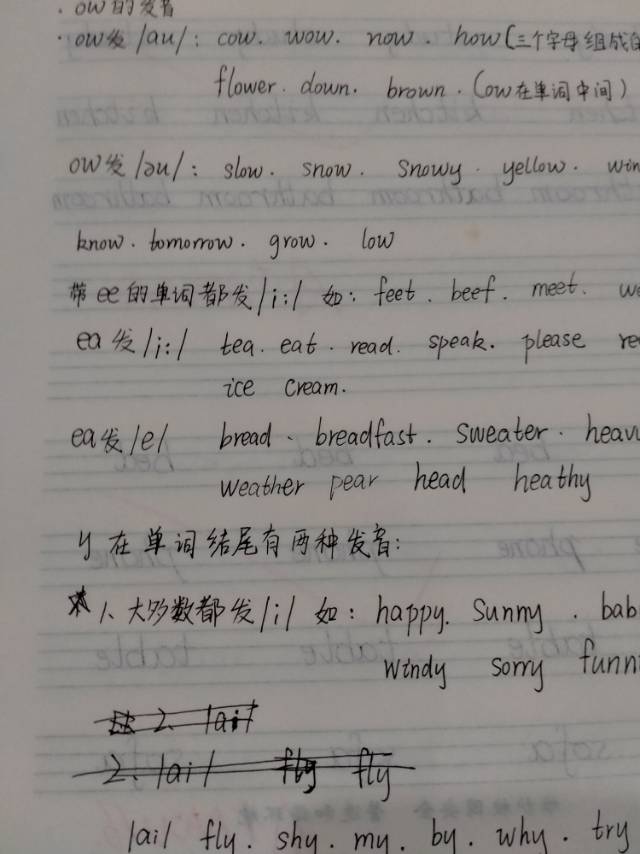 . ow的发音
· ow发/au/: cow. wow. now. how(三个字母组成
flower. down. brown. (ow在单词中间)
ow发/əu/: slow. snow. snowy. yellow. win
know. tomorrow. grow. low
带ee的单词都发/i:/ 如: feet. beef. meet. we
ea发/i:/ tea. eat. read. speak. please re
ice cream.
ea发/e/ bread. breadfast. sweater. heav
weather pear head heathy
y在单词结尾有两种发音:
1、大多数都发/i/ 如: happy. sunny. bab
windy sorry funn
2. /ai/
2. /ai/ fly fly
/ai/ fly. shy. my. by. why. try